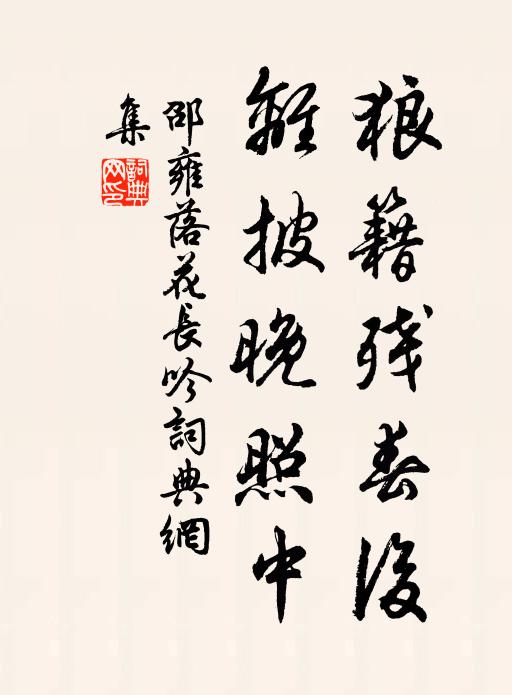 狼籍残春後
離披晚照中
邵雍落花長吟詞典網
集
詞典網印